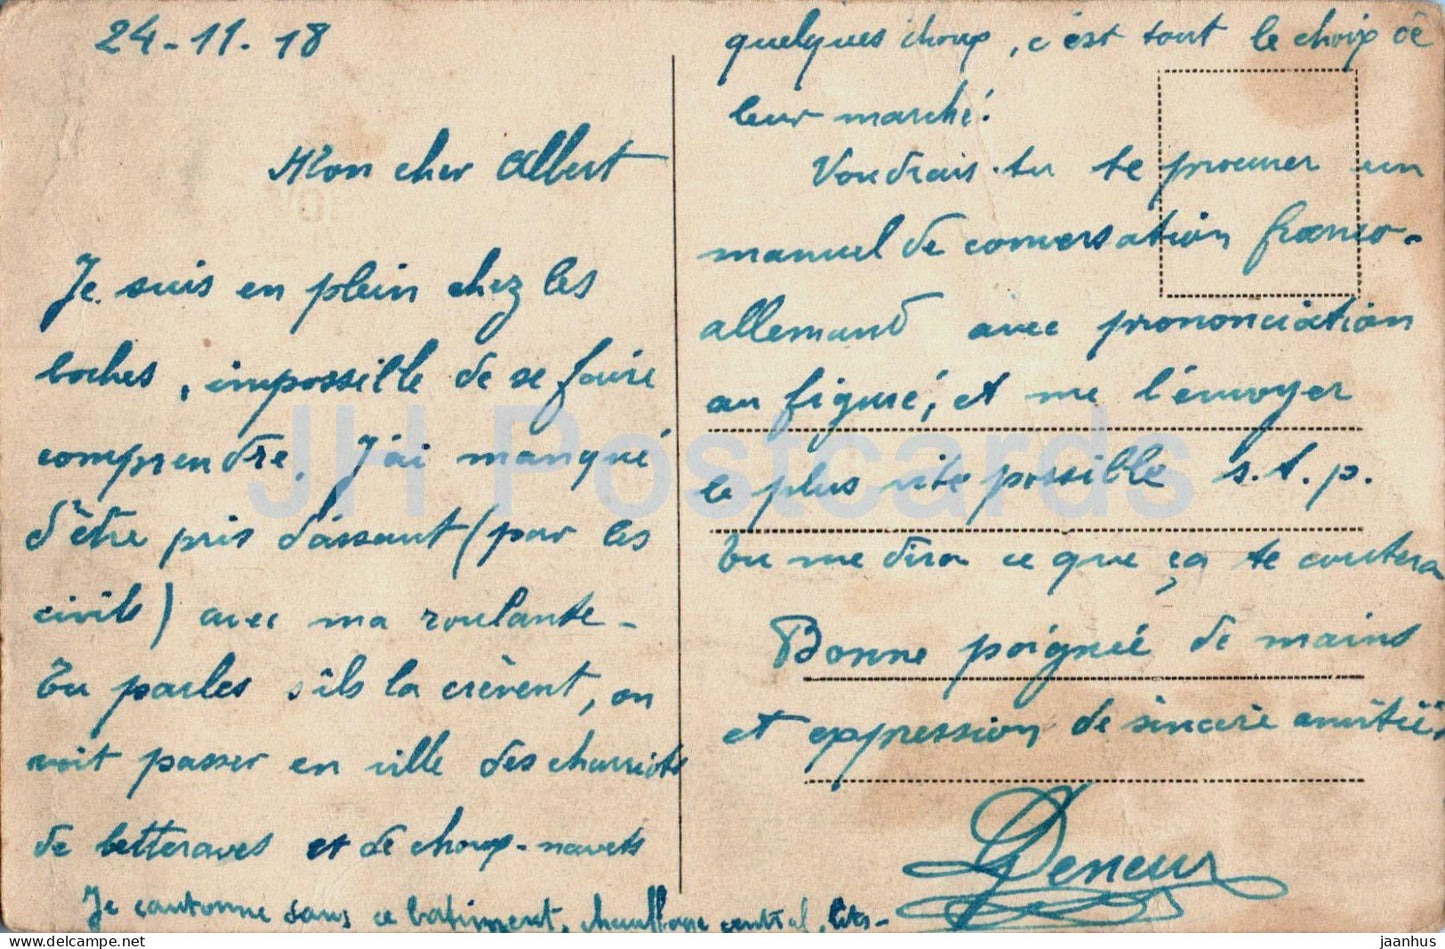 24-11-18
Mon cher Albert
Je suis en plein chez les
boches, impossible de se faire
comprendre. J'ai manqué
d'être pris d'assaut (par les
civils) avec ma roulante-
Tu parles s'ils la crèvent, on
voit passer en ville des charriots
de betteraves et de choux-navets
Je cantonne dans ce batiment, chauffage central, lits-
quelques choux, c'est tout le choix de
leur marché.
Voudrais-tu te procurer un
manuel de conversation franco-
allemand avec prononciation
au figuré, et me l'envoyer
le plus vite possible s.t.p.
Tu me dira ce que ça te coutera
Bonne poignée de mains
et expression de sincère amitiés
Deneur
JH Postcards
delcampe.net
jaanhus